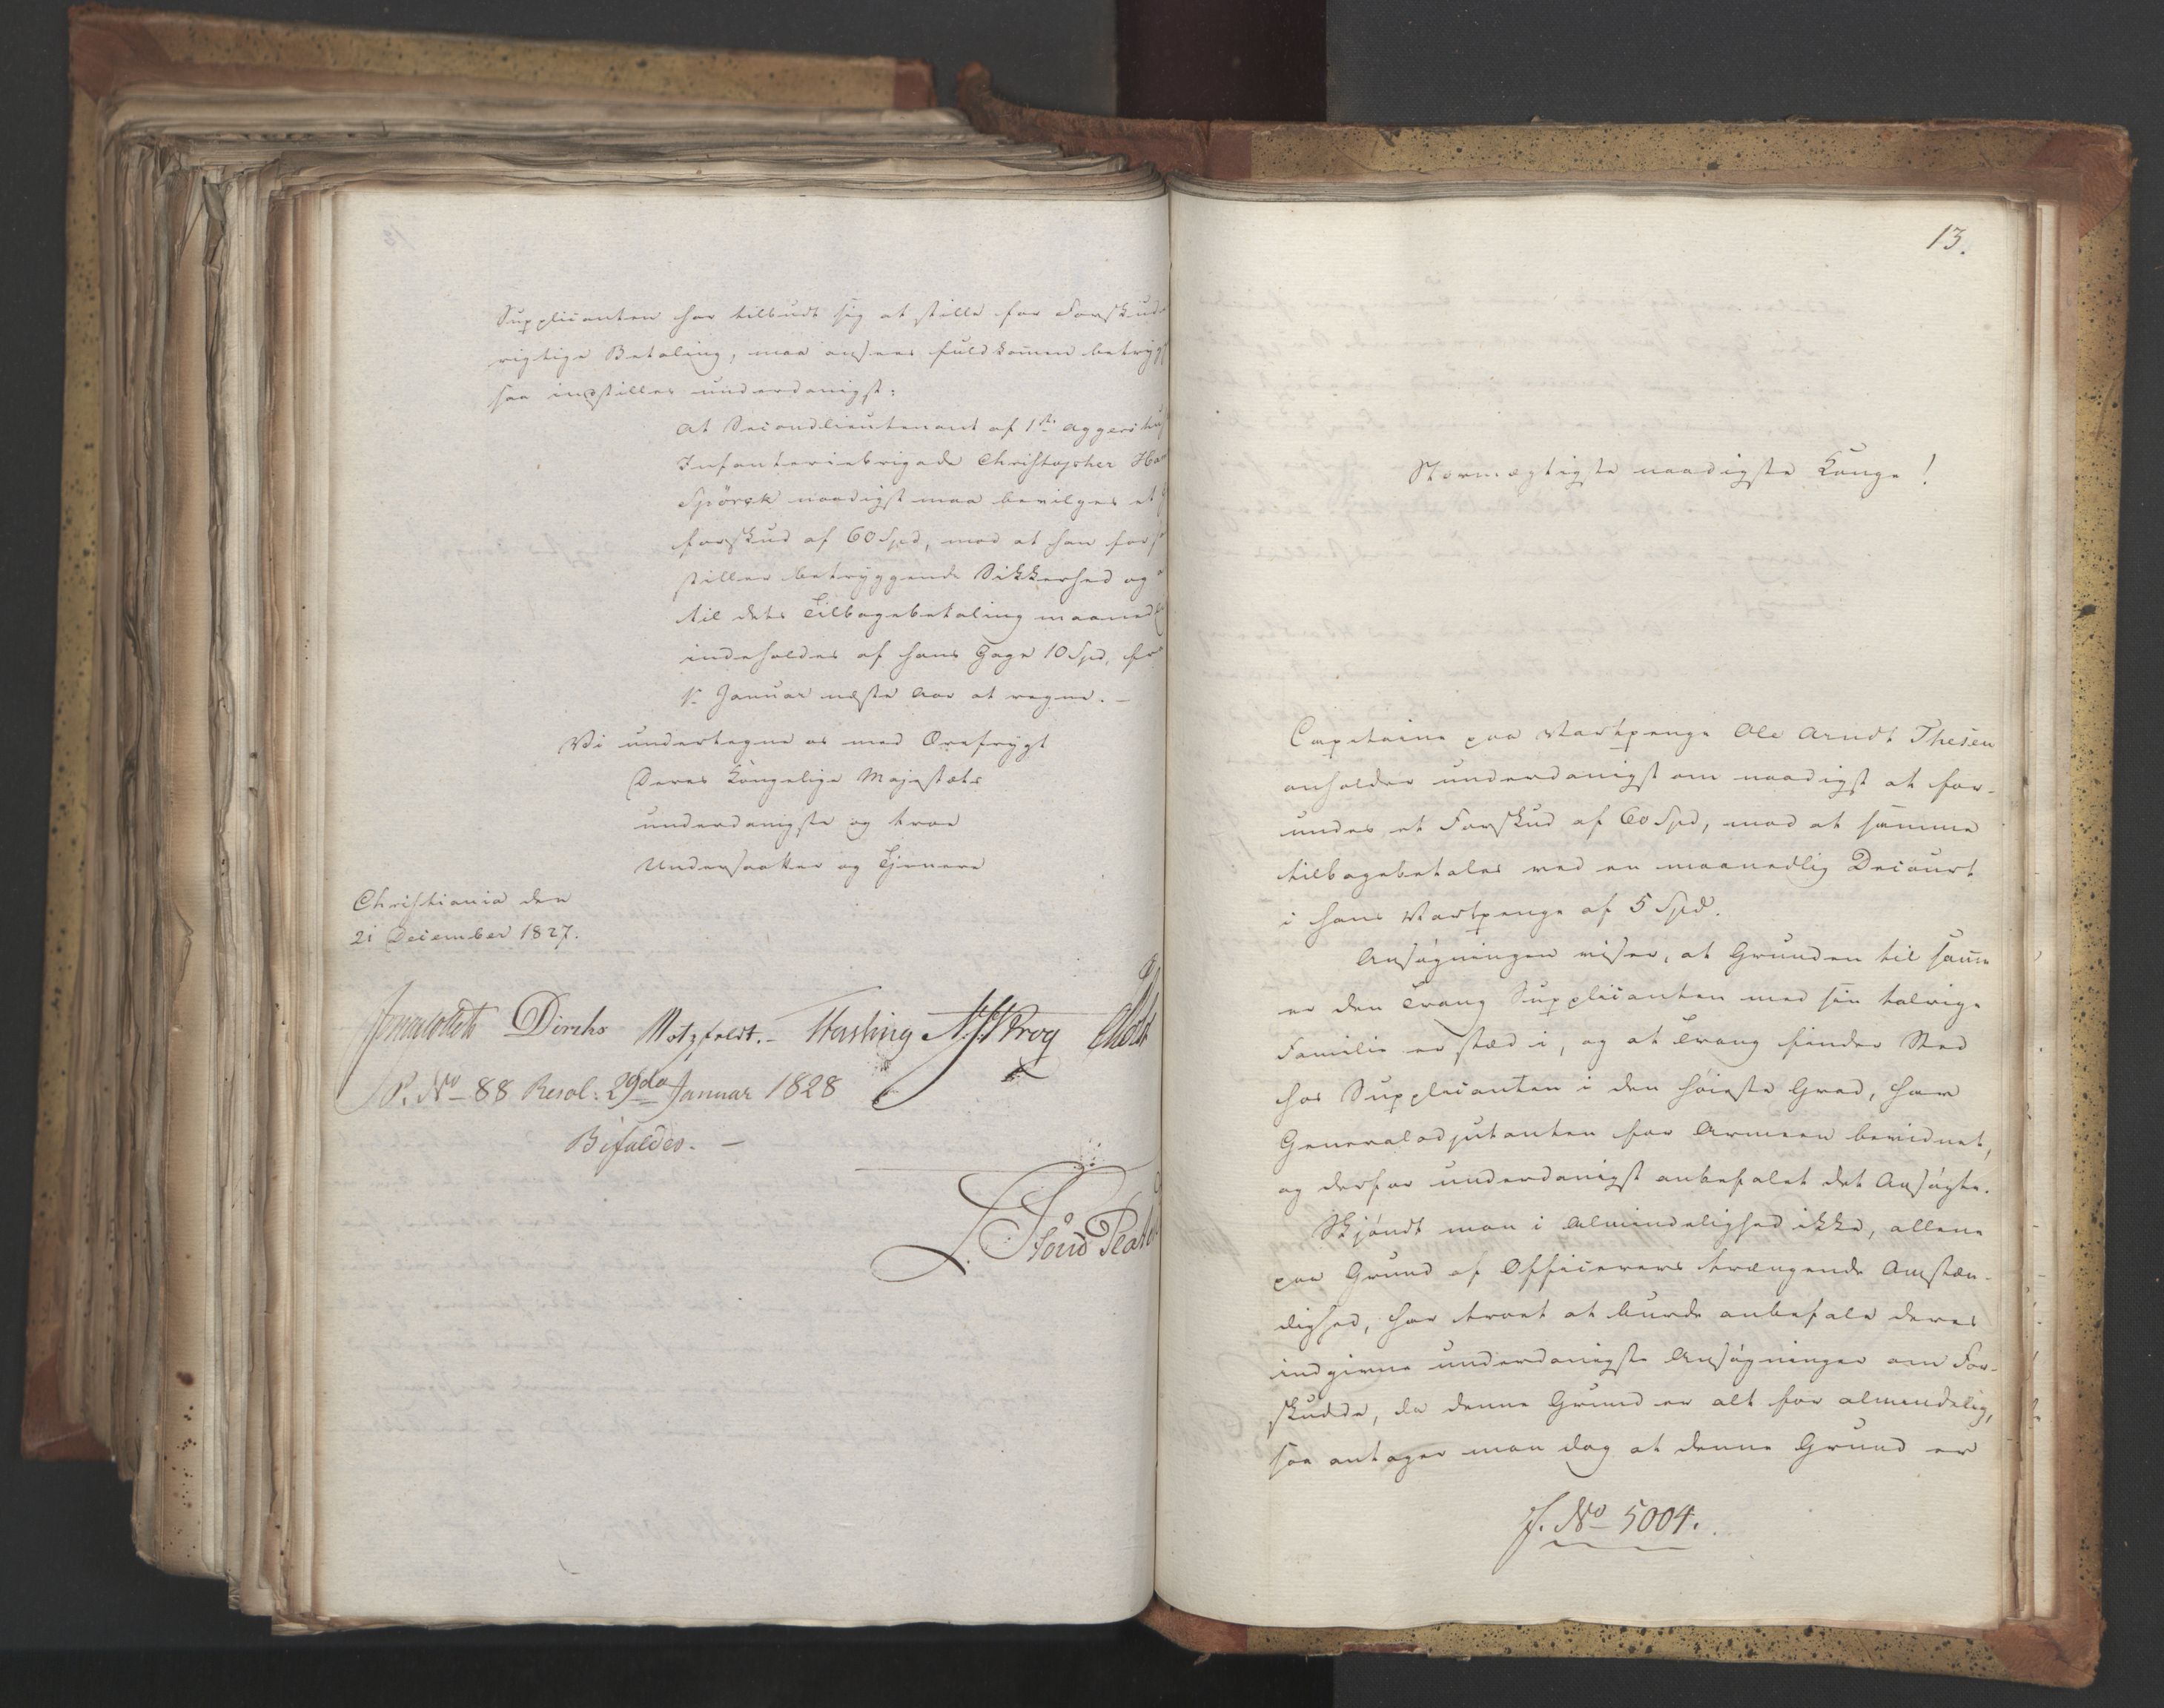 Supplicanten har tilbudt sig at stille for Forskud
rigtige Betaling, maa ansees fuldkommen betryg
saa indstilles underdanigst:
At Secondlieutenant af 1ste Aggershus
Infanteriebrigade Christopher
Spörck naadigst maa bevilges et
Forskud af 60 Spd, mod at han for
stiller betryggende Sikkerhed og
til dets Tilbagebetaling maaned
indeholdes af hans Gage 10 Spd, fra
1. Januar næste Aar at regne. —
Vi undertegne os med Ærefrygt
Deres Kongelige Majestæts
underdanigste og troe
Undersaatter og Tjenere
Christiania den
21 December 1827.
Diriks Motzfeldt. Krog
P. No 88 Resol: 29de Januar 1828
Bifaldes. —
13.
Stormægtigste naadigste Konge!
Capitaine paa Vartpenge Ole Arndt Thesen
anholder underdanigst om naadigst at for-
undes et Forskud af 60 Spd, mod at samme
tilbagebetales ved en maanedlig Decourt
i hans Vartpenge af 5 Spd.
Ansøgningen viser, at Grunden til samme
er den Trang Supplicanten med sin talrige
Familie er stæd i, og at Trang finder Sted
hos Supplicanten i den høieste Grad, har
Generaladjutanten for Armeen bevidnet,
og derfor underdanigst anbefalet det Ansøgte.
Skjøndt man i Almindelighed ikke, allene
paa Grund af Officerers trængende Omstæn-
dighed, har troet at burde anbefale deres
indgivne underdanigste Ansøgninger om For-
skudde, da denne Grund er alt for almindelig,
saa antager man dog at denne Grund er
J. No 5004.